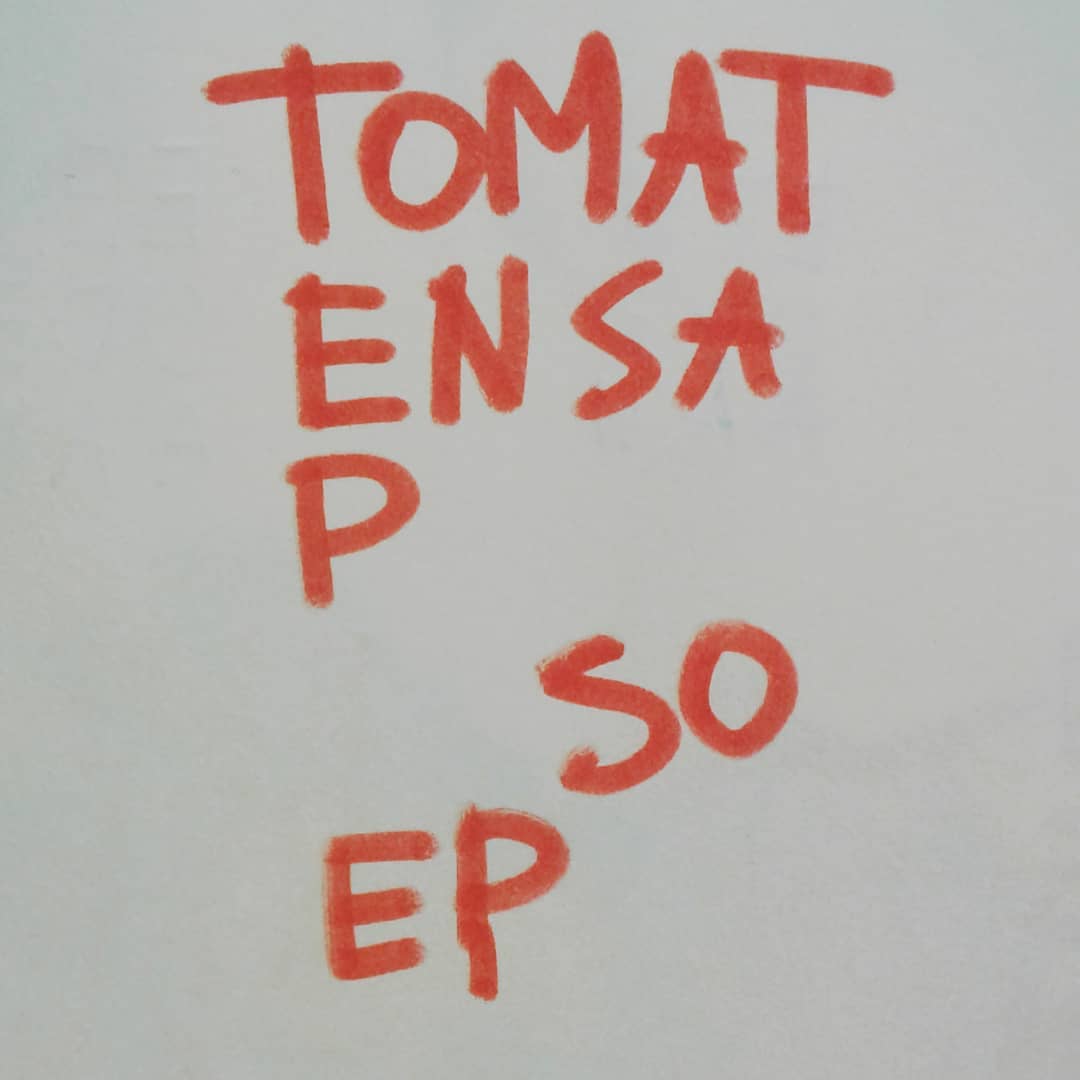 TOMAT
ENSA
P
SO
EP